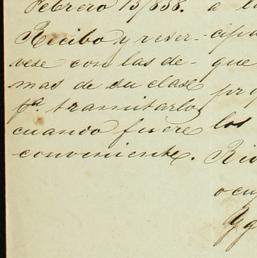 Febrero 15/858. a l
Recibo y reser- cipa
vese con las de- que
mas de su clase pro
pª tramitarlos
cuando fuere los
conveniente. Rio
ocu
Yg